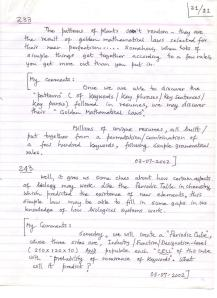 21/21
233
The patterns of plants aren't random - they
are the result of golden mathematical laws selected for
their near perfection..... Somehow, when lots of
simple things get together according to a few rules
you get more out than you put in
My Comments :
Once we are able to discover the
"patterns" (of keywords / key phrases / key sentences /
key paras) followed in resumes, we may discover
their "Golden Mathematical Laws".
Millions of unique resumes, all built /
put together from a permutation / combination of
a few hundred keywords, following simple grammatical
rules.
03-07-2002
243
Well, it gives us some clues about how certain aspects
of biology may work. Like the Periodic Table in Chemistry
which predicted the existence of new elements, this
simple law may be able to fill in some gaps in our
knowledge of how biological systems work.
My Comments :
Someday, we will create a "Periodic Cube",
whose three sides are, Industry / Function / Designation-level
and populate each "Cell" of this cube
with "probability of occurrence of Keywords". What
will it predict ?
03-07-2002